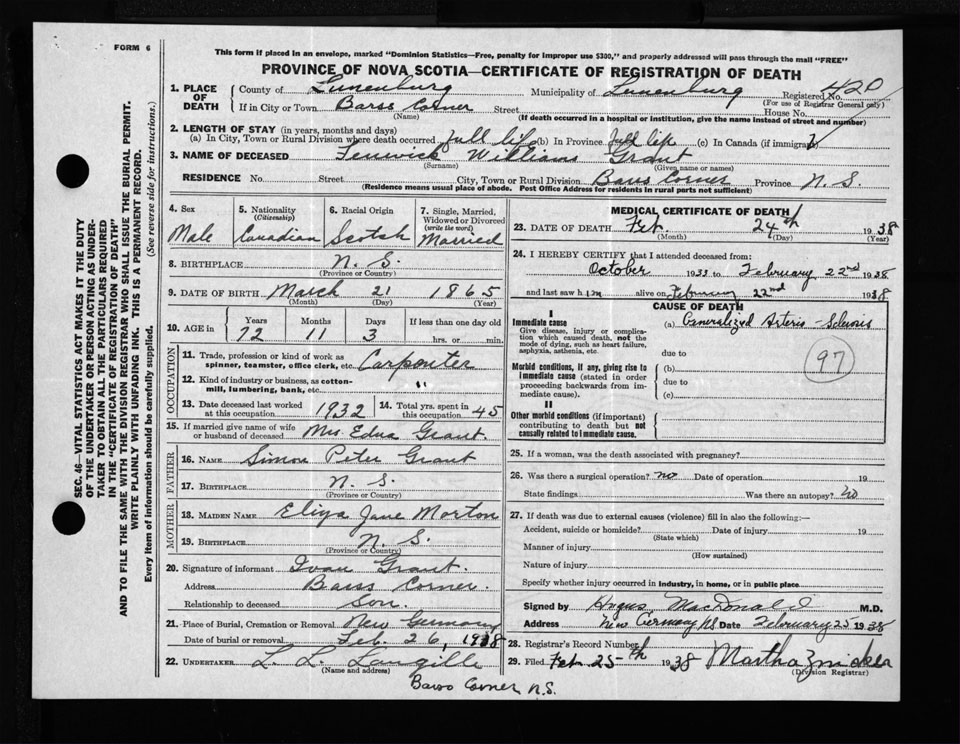 FORM 6
This form if placed in an envelope, marked "Dominion Statistics—Free, penalty for improper use $300," and properly addressed will pass through the mail "FREE"
PROVINCE OF NOVA SCOTIA—CERTIFICATE OF REGISTRATION OF DEATH
SEC. 46—VITAL STATISTICS ACT MAKES IT THE DUTY
OF THE UNDERTAKER OR PERSON ACTING AS UNDER-
TAKER TO OBTAIN ALL THE PARTICULARS REQUIRED
IN THE "CERTIFICATE OF REGISTRATION OF DEATH"
AND TO FILE THE SAME WITH THE DIVISION REGISTRAR WHO SHALL ISSUE THE BURIAL PERMIT.
WRITE PLAINLY WITH UNFADING INK. THIS IS A PERMANENT RECORD.
Every item of information should be carefully supplied. (See reverse side for instructions.)
1. PLACE OF DEATH County of Lunenburg Municipality of Lunenburg Registered No. 420
(For use of Registrar General only)
If in City or Town Barss Corner Street House No.
(Name) (If death occurred in a hospital or institution, give the name instead of street and number)
2. LENGTH OF STAY (in years, months and days)
(a) In City, Town or Rural Division where death occurred full life (b) In Province full life (c) In Canada (if immigrant)
3. NAME OF DECEASED Fenwick Williams Grant
(Surname) (Given name or names)
RESIDENCE No. Street City, Town or Rural Division Barss Corner Province N. S.
(Residence means usual place of abode. Post Office Address for residents in rural parts not sufficient)
4. Sex Male
5. Nationality (Citizenship) Canadian
6. Racial Origin Scotsh
7. Single, Married, Widowed or Divorced (write the word) Married
8. BIRTHPLACE N. S.
(Province or Country)
9. DATE OF BIRTH March 21 1865
(Month) (Day) (Year)
10. AGE in Years Months Days If less than one day old
72 11 3 hrs. or min.
OCCUPATION
11. Trade, profession or kind of work as spinner, teamster, office clerk, etc. Carpenter
12. Kind of industry or business, as cotton-mill, lumbering, bank, etc. "
13. Date deceased last worked at this occupation 1932
14. Total yrs. spent in this occupation 45
15. If married give name of wife or husband of deceased Mrs. Edna Grant.
FATHER
16. NAME Simon Peter Grant
17. BIRTHPLACE N. S.
(Province or Country)
MOTHER
18. MAIDEN NAME Eliza Jane Morton
19. BIRTHPLACE N. S.
(Province or Country)
20. Signature of informant Ivan Grant.
Address Barss Corner.
Relationship to deceased Son.
21. Place of Burial, Cremation or Removal New Germany
Date of burial or removal Feb. 26, 1938
22. UNDERTAKER L. L. Langille
(Name and address)
Barss Corner N.S.
MEDICAL CERTIFICATE OF DEATH
23. DATE OF DEATH Feb. 24th 1938
(Month) (Day) (Year)
24. I HEREBY CERTIFY that I attended deceased from:
October 1933 to February 22nd 1938
and last saw him alive on February 22nd 1938
CAUSE OF DEATH
I
Immediate cause
Give disease, injury or complication which caused death, not the mode of dying, such as heart failure, asphyxia, asthenia, etc.
(a) Generalized Arterio-Sclerosis
due to
97
Morbid conditions, if any, giving rise to immediate cause (stated in order proceeding backwards from immediate cause).
(b)
due to
(c)
II
Other morbid conditions (if important) contributing to death but not causally related to immediate cause.
25. If a woman, was the death associated with pregnancy?
26. Was there a surgical operation? no Date of operation 19
State findings Was there an autopsy? No
27. If death was due to external causes (violence) fill in also the following:—
Accident, suicide or homicide? Date of injury 19
(State which)
Manner of injury
(How sustained)
Nature of injury
Specify whether injury occurred in industry, in home, or in public place
Signed by Angus MacDonald M.D.
Address New Germany NS Date February 25 1938
28. Registrar's Record Number
29. Filed Feb. 25-th 1938 Martha Zwicker
(Division Registrar)